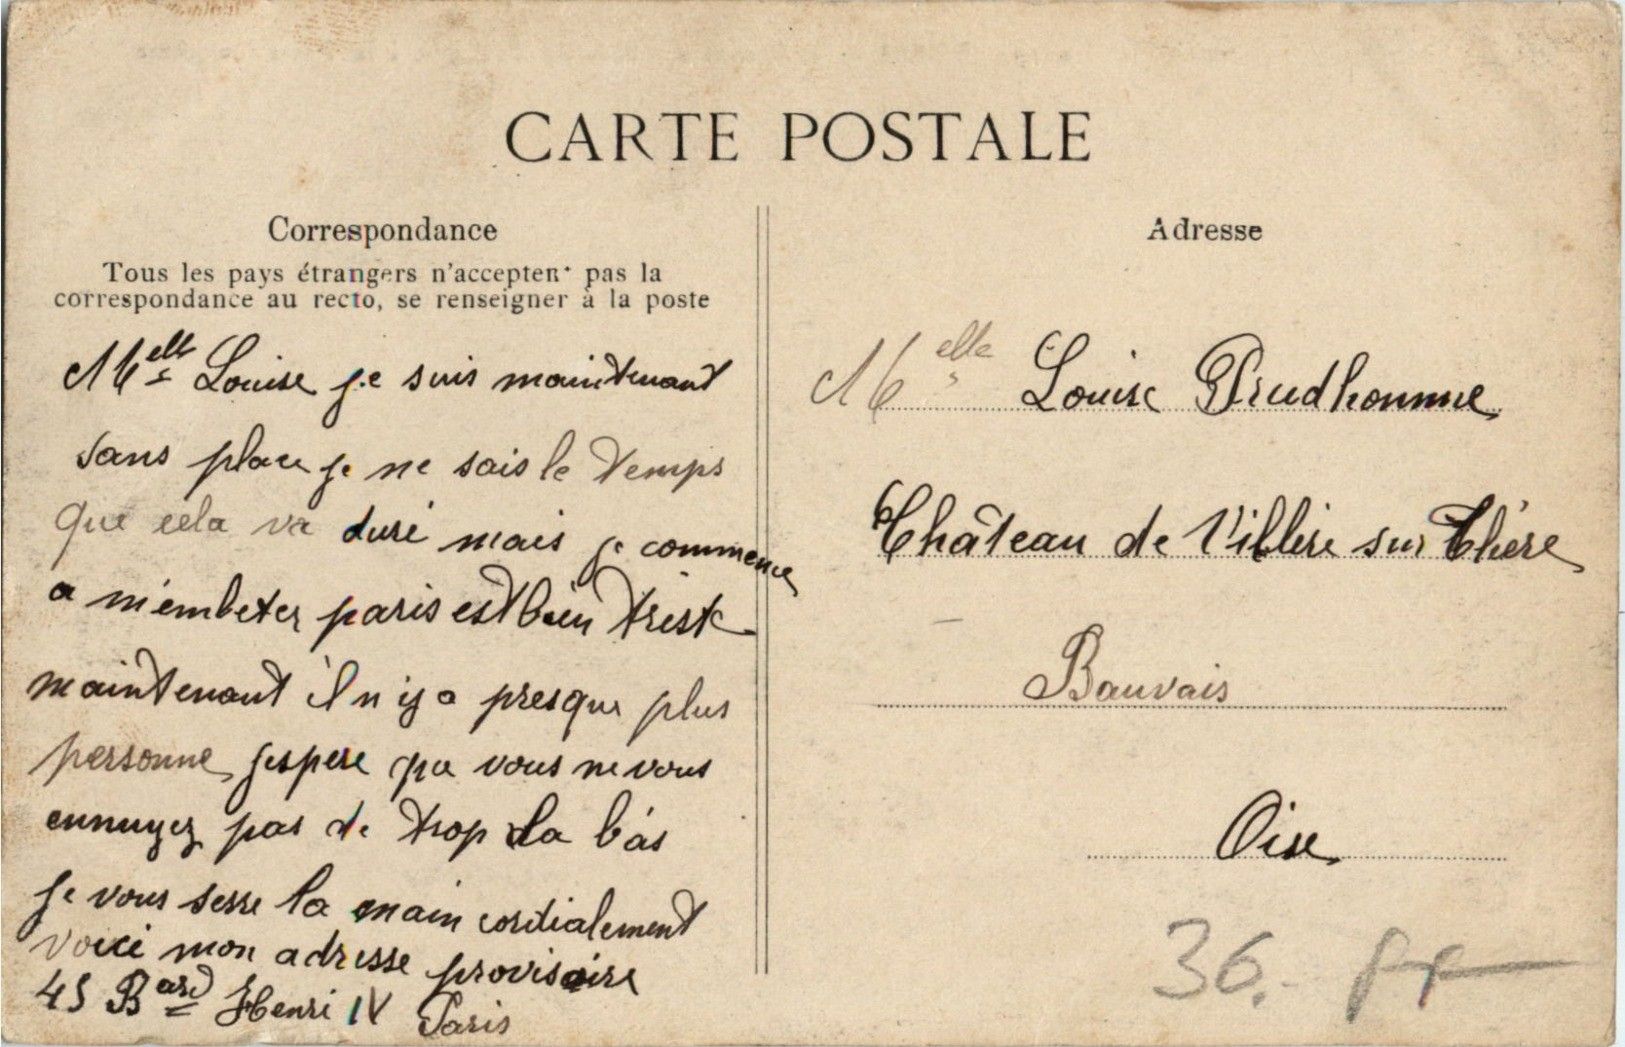 CARTE POSTALE
Correspondance
Tous les pays étrangers n'acceptent pas la
correspondance au recto, se renseigner à la poste
Melle Louise je suis maintenant
sans place je ne sais le temps
que cela va duré mais je commence
a m'embeter paris est bien triste
maintenant il n'y a presque plus
personne jespere que vous ne vous
ennuyez pas de trop la bàs
Je vous serre la main cordialement
voici mon adresse provisoire
45 Bard Henri IV Paris
Adresse
Melle Louise Prudhomme
Château de Villere sur Thère
Bauvais
Oise
36.-